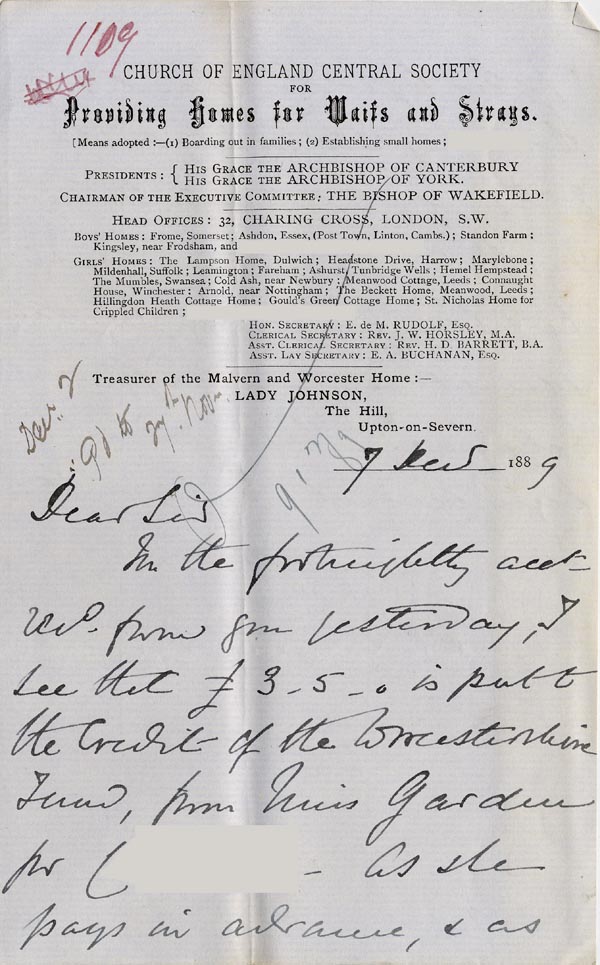 1109
CHURCH OF ENGLAND CENTRAL SOCIETY
FOR
Providing Homes for Waifs and Strays.
[Means adopted :—(1) Boarding out in families ; (2) Establishing small homes ;
PRESIDENTS : { HIS GRACE THE ARCHBISHOP OF CANTERBURY
HIS GRACE THE ARCHBISHOP OF YORK.
CHAIRMAN OF THE EXECUTIVE COMMITTEE : THE BISHOP OF WAKEFIELD.
HEAD OFFICES : 32, CHARING CROSS, LONDON, S.W.
BOYS' HOMES : Frome, Somerset ; Ashdon, Essex, (Post Town, Linton, Cambs.) ; Standon Farm ;
Kingsley, near Frodsham, and
GIRLS' HOMES : The Lampson Home, Dulwich ; Headstone Drive, Harrow ; Marylebone ;
Mildenhall, Suffolk ; Leamington ; Fareham ; Ashurst, Tunbridge Wells ; Hemel Hempstead ;
The Mumbles, Swansea ; Cold Ash, near Newbury ; Meanwood Cottage, Leeds ; Connaught
House, Winchester : Arnold, near Nottingham ; The Beckett Home, Meanwood, Leeds ;
Hillingdon Heath Cottage Home ; Gould's Green Cottage Home ; St. Nicholas Home for
Crippled Children ;
HON. SECRETARY : E. de M. RUDOLF, ESQ.
CLERICAL SECRETARY : REV. J. W. HORSLEY, M.A.
ASST. CLERICAL SECRETARY : REV. H. D. BARRETT, B.A.
ASST. LAY SECRETARY : E. A. BUCHANAN, ESQ.
Treasurer of the Malvern and Worcester Home :—
LADY JOHNSON,
The Hill,
Upton-on-Severn.
pd to 27th Nov.
7 Dec 1889
Dear Sir
In the fortnightly acct
recd. from you yesterday, I
see that £3-5-0 is put to
the Credit of the Worcestershire
Fund, from Miss Garden
for ( - As she
pays in advance, & as